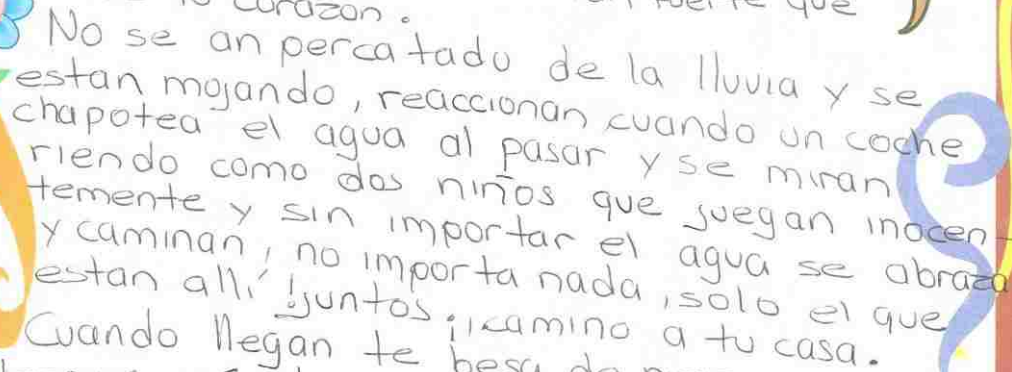 corazon. que
No se an percatado de la lluvia y se
estan mojando, reaccionan cuando un coche
chapotea el agua al pasar y se miran
riendo como dos niños que juegan inocen-
temente y sin importar el agua se abraza
y caminan, no importa nada, solo el que
estan allí juntos, camino a tu casa.
Cuando llegan te